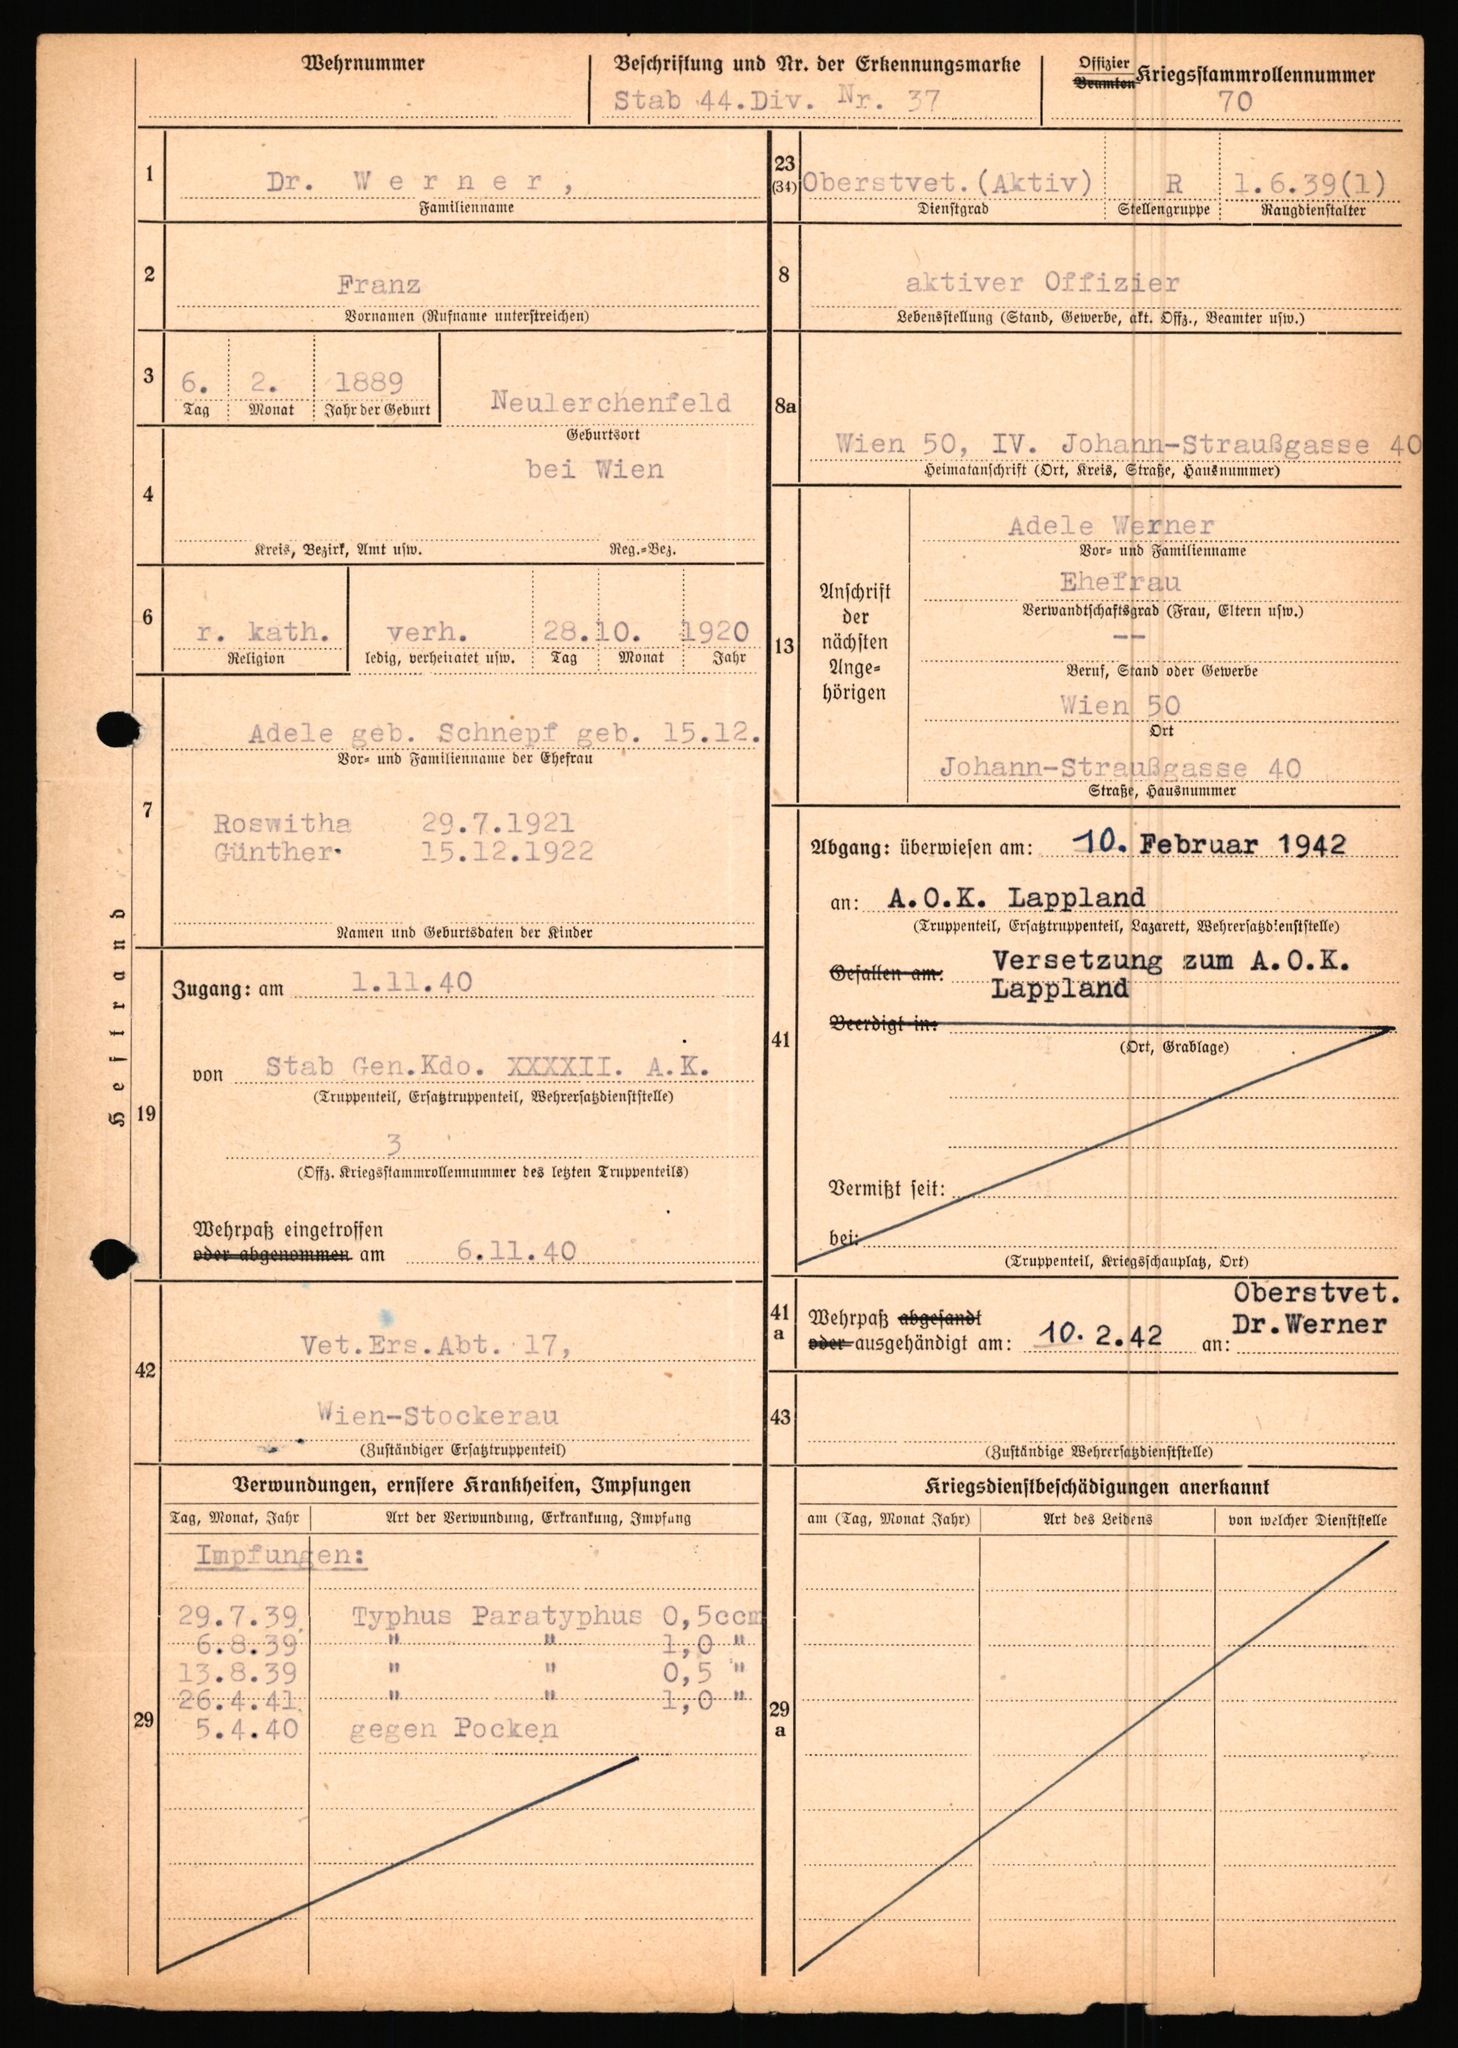 Wehrnummer
Beschriftung und Nr. der Erkennungsmarke
Stab 44.Div. Nr. 37
Offizier
Beamten
Kriegsstammrollennummer
70
Heftrand
1
Dr. Werner,
Familienname
2
Franz
Vornamen (Rufname unterstreichen)
3
6. 2. 1889
Tag Monat Jahr der Geburt
Neulerchenfeld
Geburtsort
4
bei Wien
Kreis, Bezirk, Amt usw. Reg.=Bez.
6
r. kath. verh. 28.10. 1920
Religion ledig, verheiratet usw. Tag Monat Jahr
7
Adele geb. Schnepf geb. 15.12.
Vor= und Familienname der Ehefrau
Roswitha 29.7.1921
Günther 15.12.1922
Namen und Geburtsdaten der Kinder
19
Zugang: am 1.11.40
von Stab Gen.Kdo. XXXXII. A.K.
(Truppenteil, Ersatztruppenteil, Wehrersatzdienststelle)
3
(Offz. Kriegsstammrollennummer des letzten Truppenteils)
Wehrpaß eingetroffen
oder abgenommen am 6.11.40
42
Vet.Ers.Abt. 17,
Wien-Stockerau
(Zuständiger Ersatztruppenteil)
Verwundungen, ernstere Krankheiten, Impfungen
Tag, Monat, Jahr Art der Verwundung, Erkrankung, Impfung
29
Impfungen:
29.7.39 Typhus Paratyphus 0,5ccm
6.8.39 " " 1,0 "
13.8.39 " " 0,5 "
26.4.41 " " 1,0 "
5.4.40 gegen Pocken
23
(34)
Oberstvet.(Aktiv) R 1.6.39(1)
Dienstgrad Stellengruppe Rangdienstalter
8
aktiver Offizier
Lebensstellung (Stand, Gewerbe, akt. Offz., Beamter usw.)
8a
Wien 50, IV. Johann-Straußgasse 40
Heimatanschrift (Ort, Kreis, Straße, Hausnummer)
13
Anschrift
der
nächsten
Ange=
hörigen
Adele Werner
Vor= und Familienname
Ehefrau
Verwandtschaftsgrad (Frau, Eltern usw.)
--
Beruf, Stand oder Gewerbe
Wien 50
Ort
Johann-Straußgasse 40
Straße, Hausnummer
41
Abgang: überwiesen am: 10. Februar 1942
an: A.O.K. Lappland
(Truppenteil, Ersatztruppenteil, Lazarett, Wehrersatzdienststelle)
Gefallen am: Versetzung zum A.O.K.
Lappland
Beerdigt in:
(Ort, Grablage)
Vermißt seit:
bei:
(Truppenteil, Kriegsschauplatz, Ort)
41
a
Wehrpaß abgesandt
oder ausgehändigt am: 10. 2.42 an:
Oberstvet.
Dr.Werner
43
(Zuständige Wehrersatzdienststelle)
Kriegsdienstbeschädigungen anerkannt
am (Tag, Monat Jahr) Art des Leidens von welcher Dienststelle
29
a